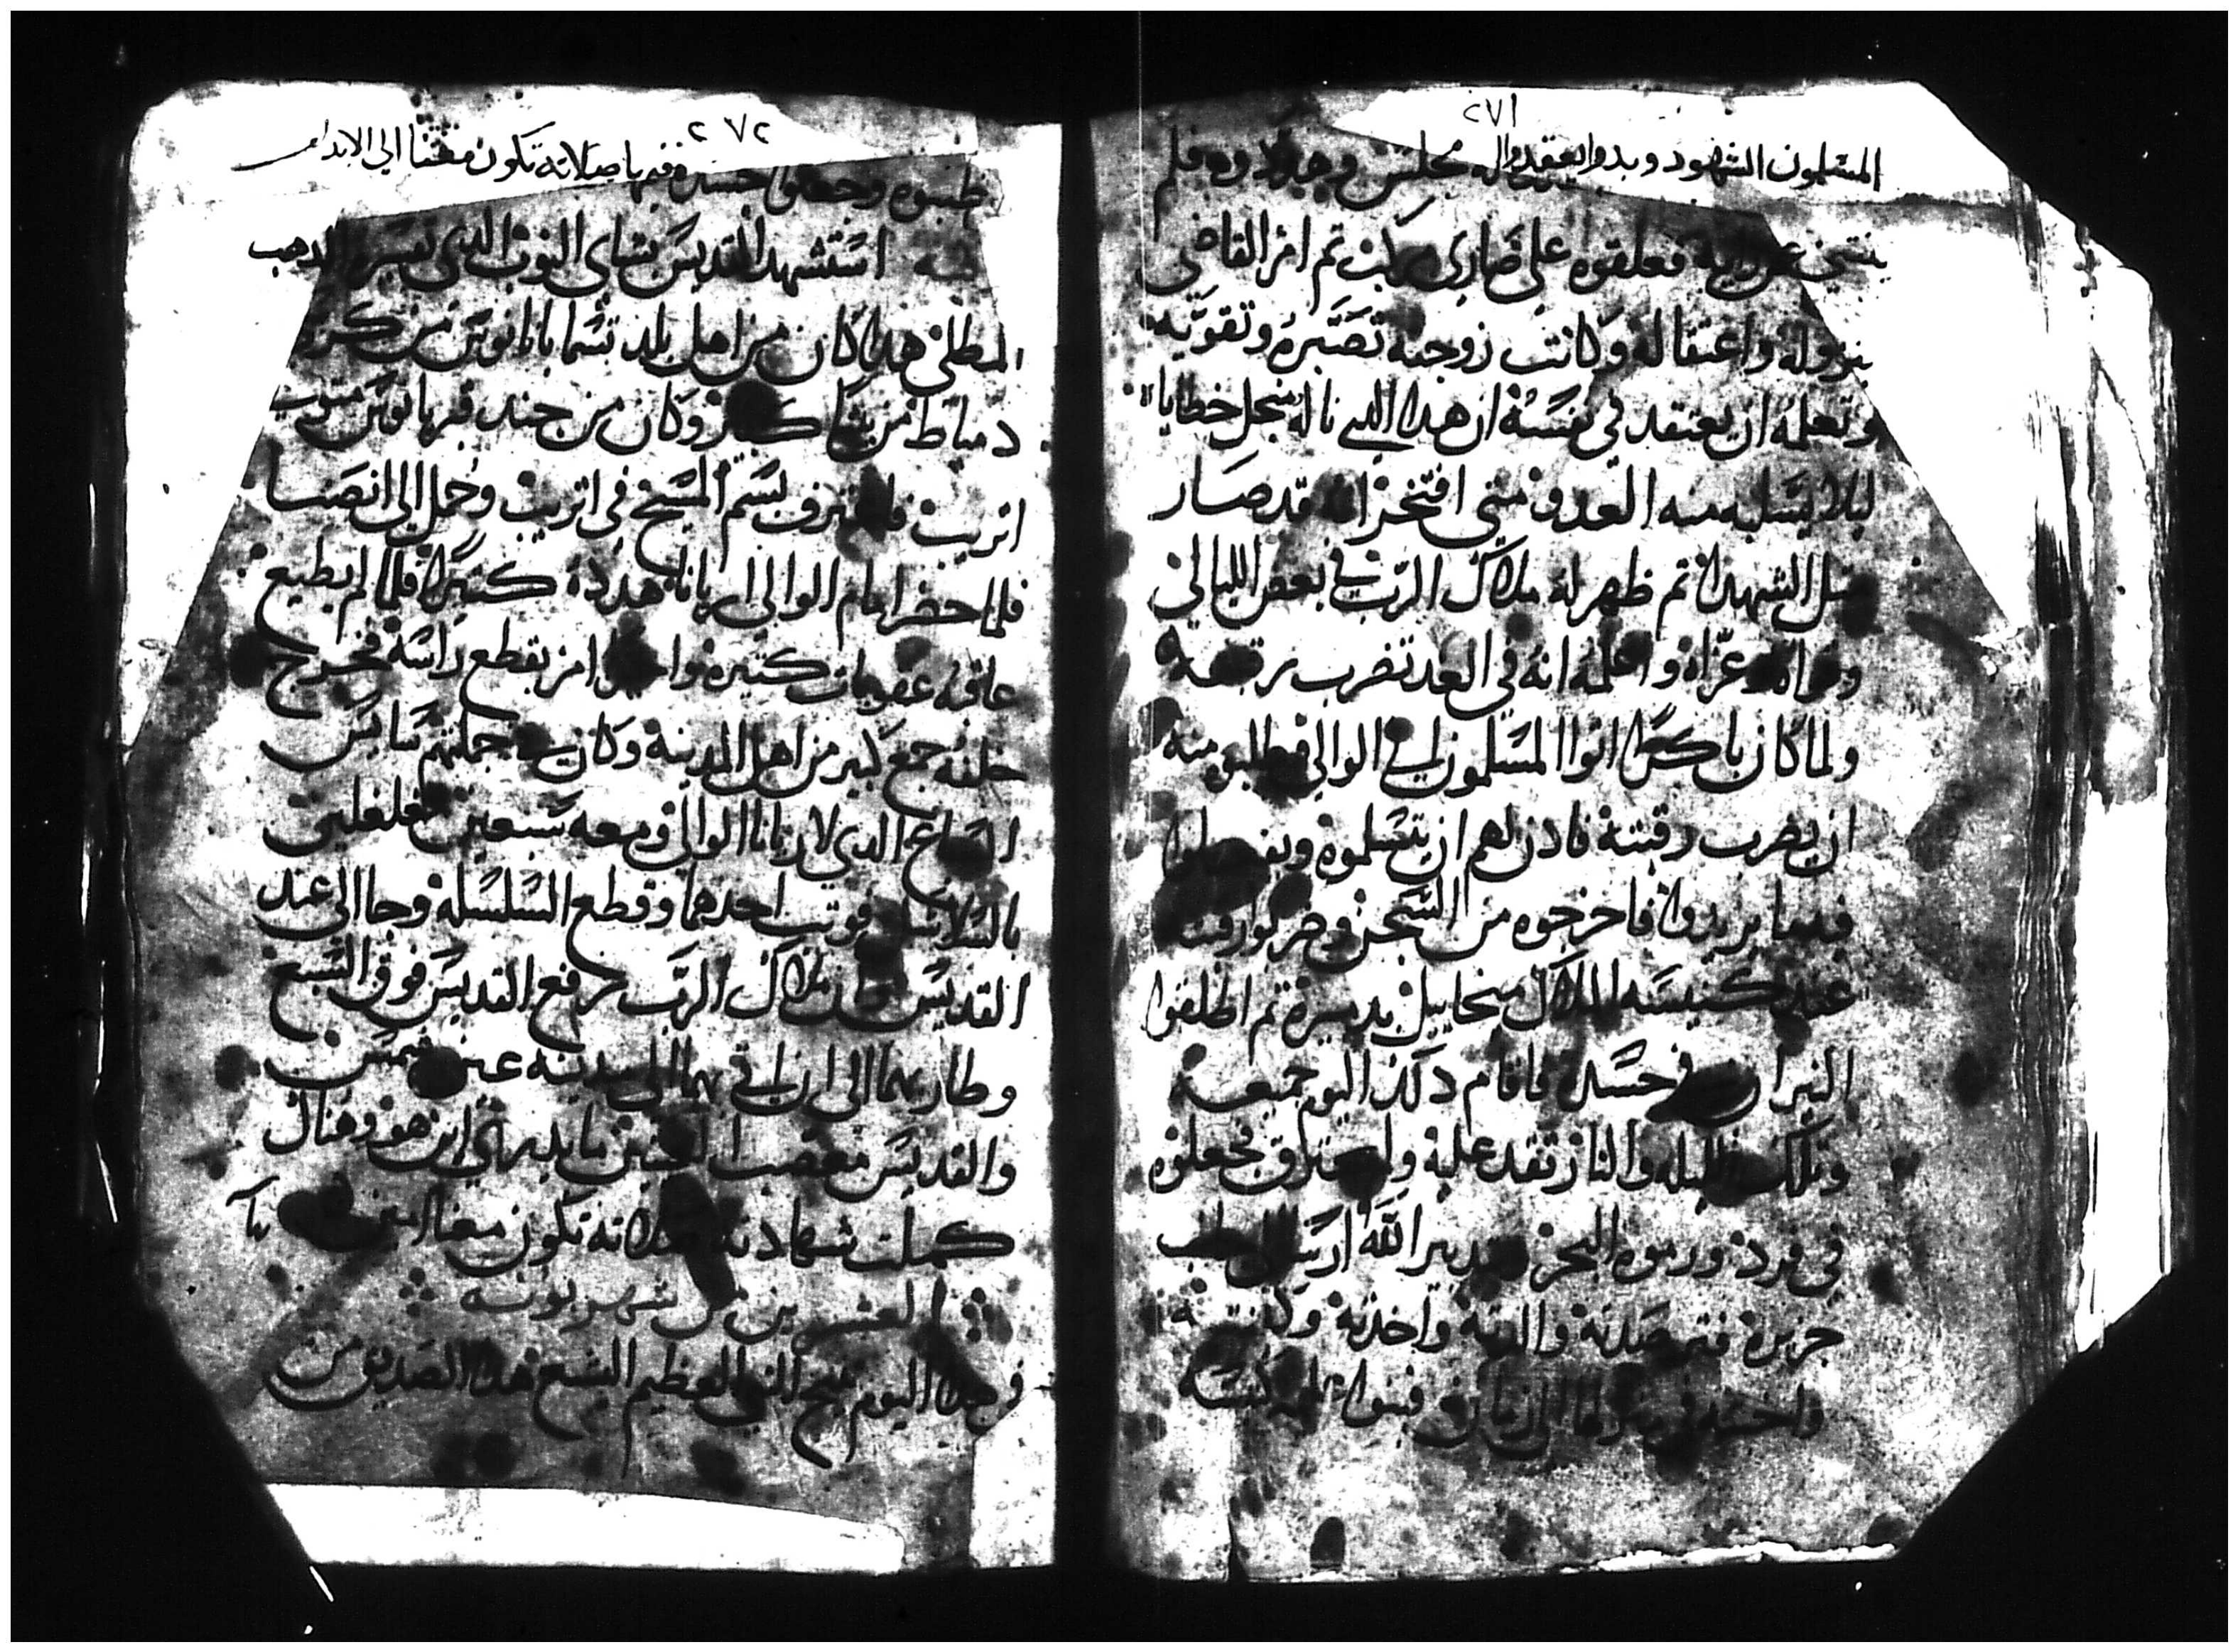 ٢٧١
المسلمون الشهود وبدوا يعقدوا له مجلس وجلدوه فلم
ينتني عن رايه فعلقوه على صاري مركب تم امر القاضي
بنزوله واعتقاله وكانت زوجته تصبره وتقويه
وتعلمه ان يعتقد في نفسه ان هدا الدي ناله من اجل خطاياه
ليلا يسلبه منه العدو متى افتخر انه قد صار
متل الشهدا تم ظهر له ملاك الرب في بعض الليالي
وقواه وعزاه واعلمه انه في الغد تضرب رقبته
ولما كان باكرا اتوا المسلمون الي الوالي وطلبو منه
ان يضرب رقبته فادن لهم ان يتسلموه ويفعلوا
فيه ما يريدوا فاخرجوه من السجن وضربوا رقبته
عند كنيسه الملاك ميخاييل بدميره تم اطلقوا
النيران في جسده فاقام دلك اليوم جميعه
وتلك الليله والنار تقد عليه ولم يحترق فجعلوه
في فرد ورموه البحر وبتدبير الله ارسا الي
جزيره فترصدته والدته واخدته وكفنته
واخفته في بيتها الي زمان فبنوا له كنيسه
٢٧٢
طيبوه وجعلوا جسده فيها صلاته تكون معنا الي الابد امين
فيه استشهد القديس بشاي النوب الدي تفسيره الدهب
المطلي هدا كان من اهل بلد تسما بانانوس من كرسي
دمياط من وكان من جند قبريانوس متولي
اتريب فاعترف بسم المسيح في اتريب وحمل الي انصنا
فلما حضر امام الوالي اريانا هدده كتيرا فلما لم يطيع
عاقبه عقوبات كتيره واخيرا امر بقطع راسه فخرج
خلفه جمع كبير من اهل المدينه وكان في جملتهم سايس
السباع الدي لاريانا الوالي ومعه سبعين مغلغلين
بالسلاسل فوتب احدهما وقطع السلسله وجا الي عند
القديس وان ملاك الرب رفع القديس فوق السبع
وطار بهما الي ان اتي بهما الي مدينه عين شمس
والقديس معصب العينين ما يدري اين هو وهناك
كملت شهادته صلاته تكون معنا امين
العشرين من شهر بوونه
في هدا اليوم تنيح النبي العظيم اليشع هدا الصديق من